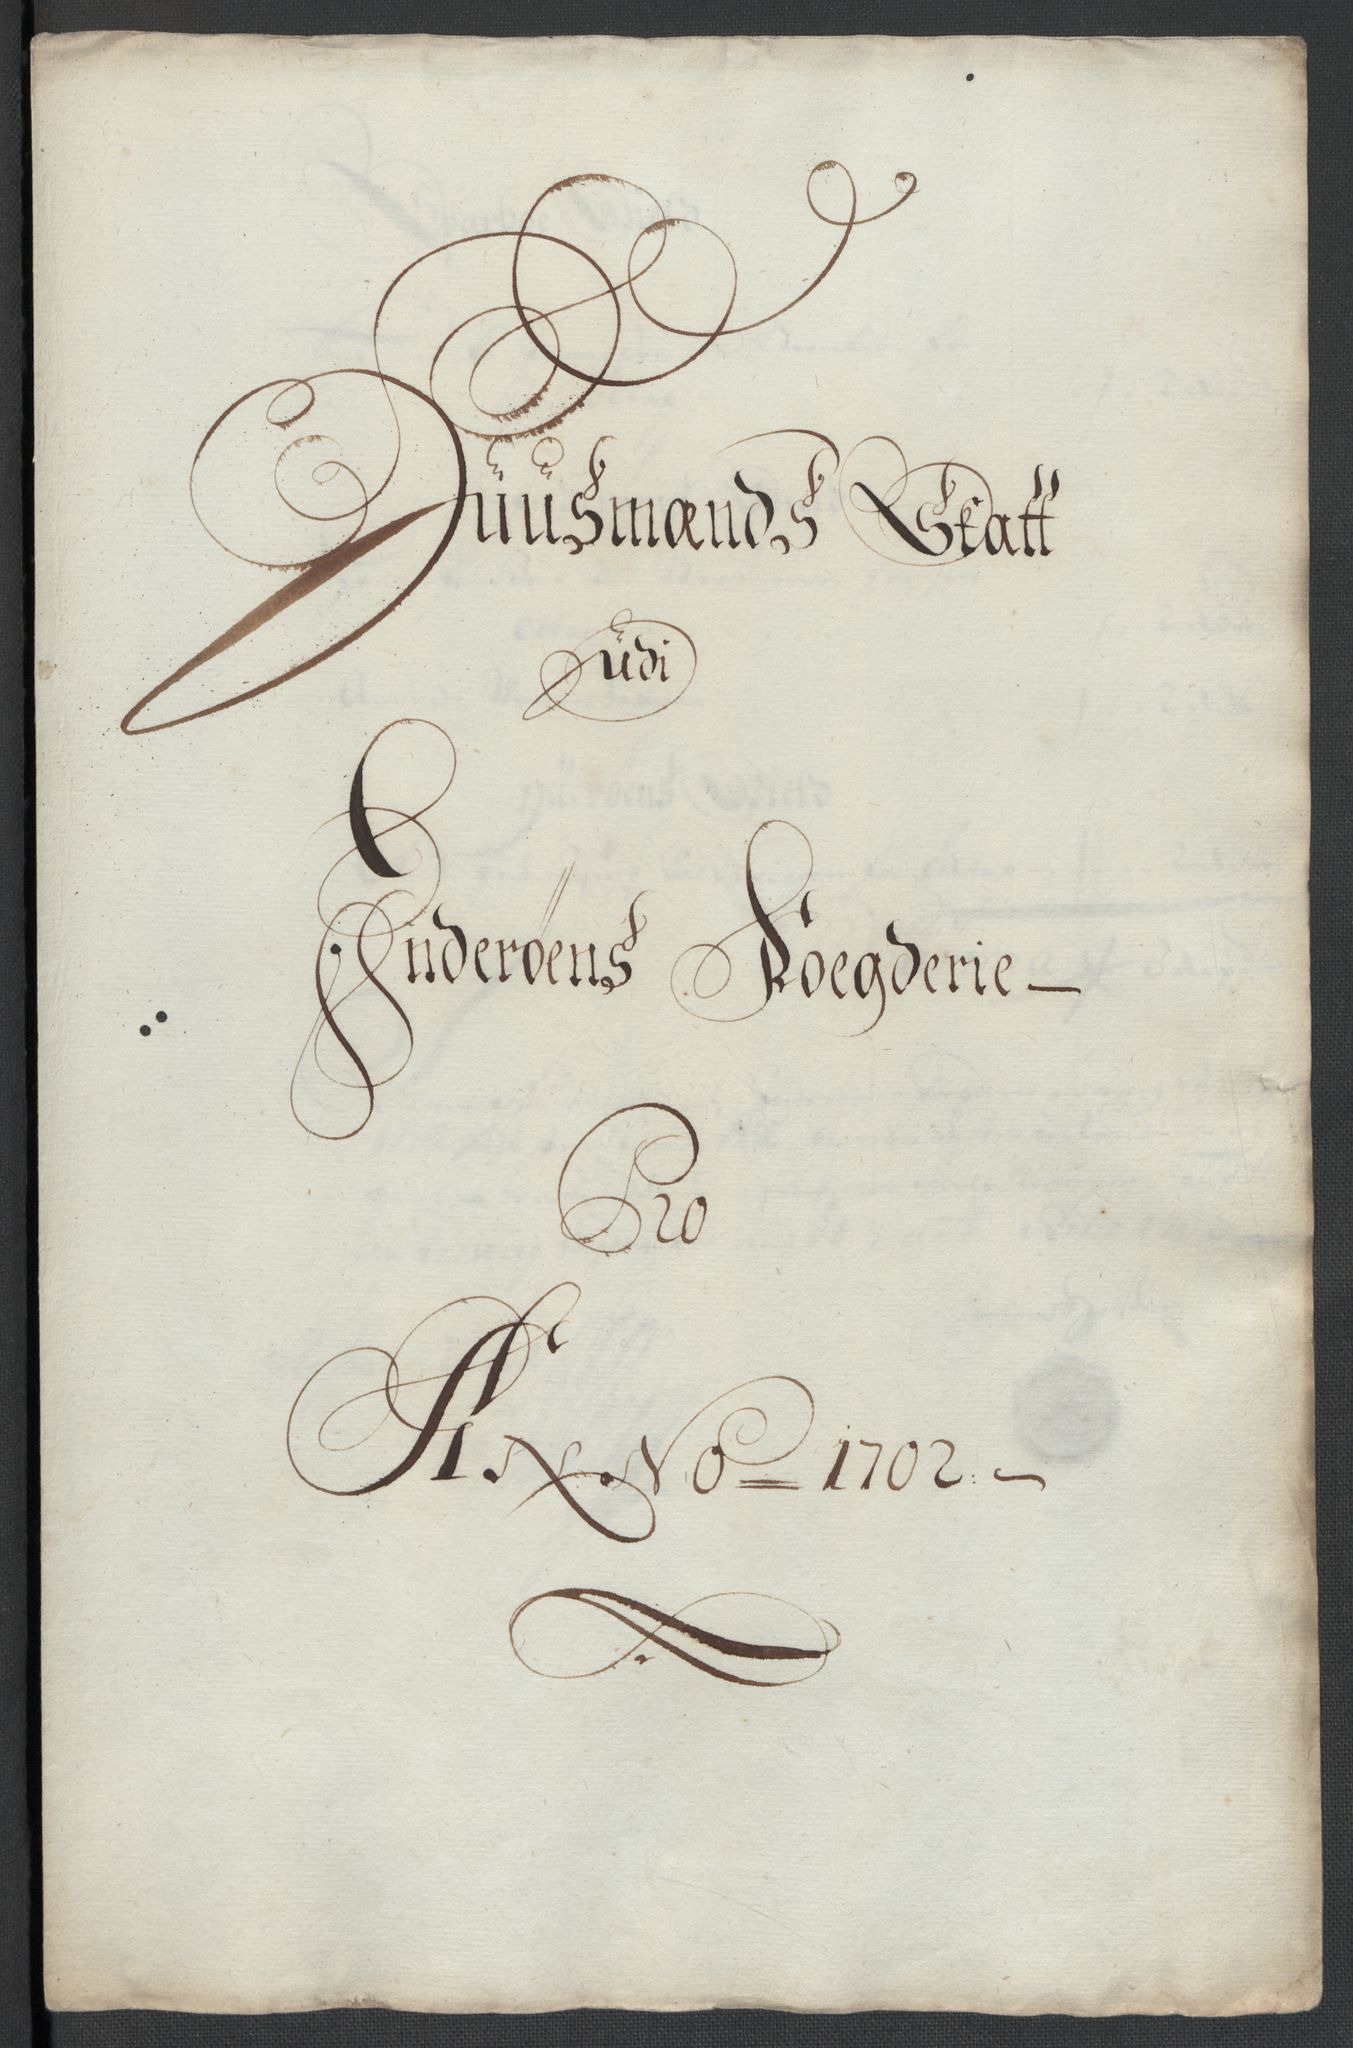 Huusmands Skatt
udi
Inderøens Foegderie
Pro
ANNo 1702